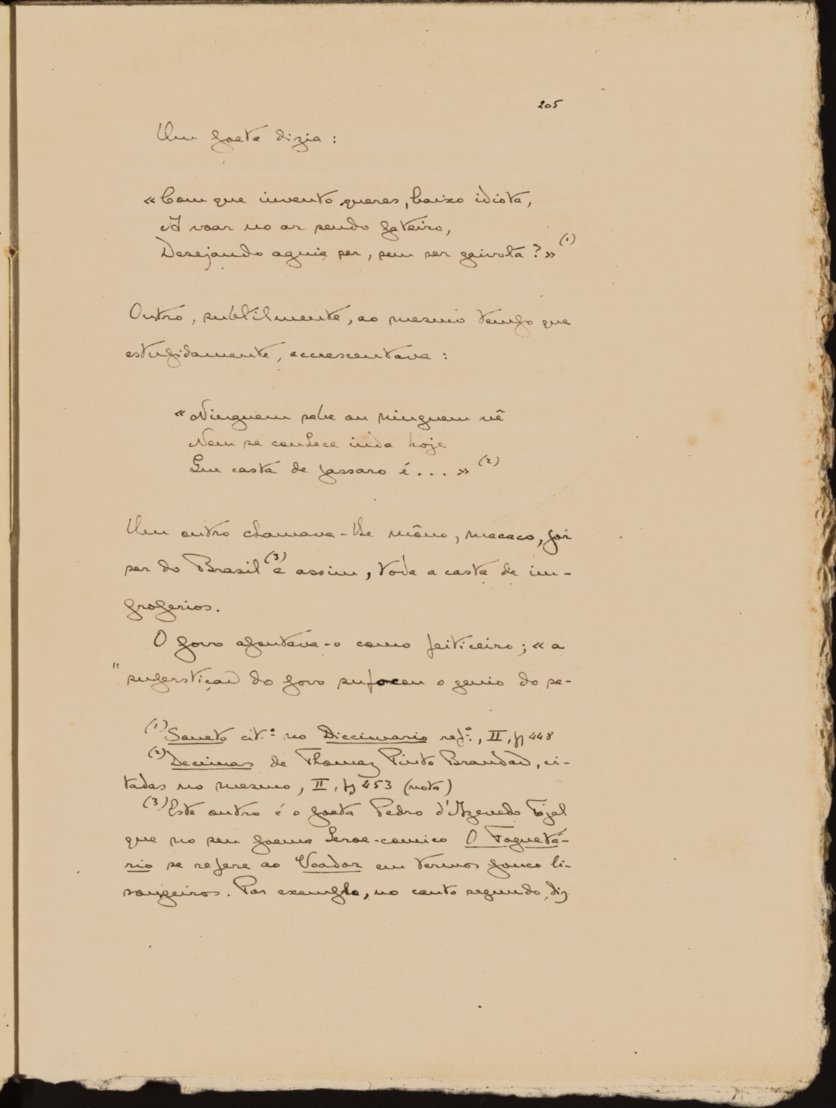 205
Um poeta dizia:
«Com que invento queres, baixo idiota,
A voar no ar sendo gateiro,
Desejando aguia ser, sem ser gaivota?»(1)
Outro, subtilmente, ao mesmo tempo que
estupidamente, accrescentava:
«Ninguem sabe ou ninguem vê
Nem se conhece inda hoje
Em casta de passaro é...»(2)
Um outro chamava-lhe môno, macaco, por
ser do Brasil(3) e assim, toda a casta de im-
properios.
O povo apontava-o como feiticeiro; «a
"superstiçaõ do povo sufocou o genio do se-
(1) Soneto cit.º no Diccionario ref.º, II, p 448
(2) Decimas de Thomaz Pinto Brandaõ, ci-
tadas no mesmo, II, p 453 (nota)
(3) Este outro é o poeta Pedro d'Azevedo Tojal
que no seu poema heroe-comico O Foguetá-
rio se refere ao Voador em termos pouco li-
songeiros. Por exemplo, no canto segundo, diz